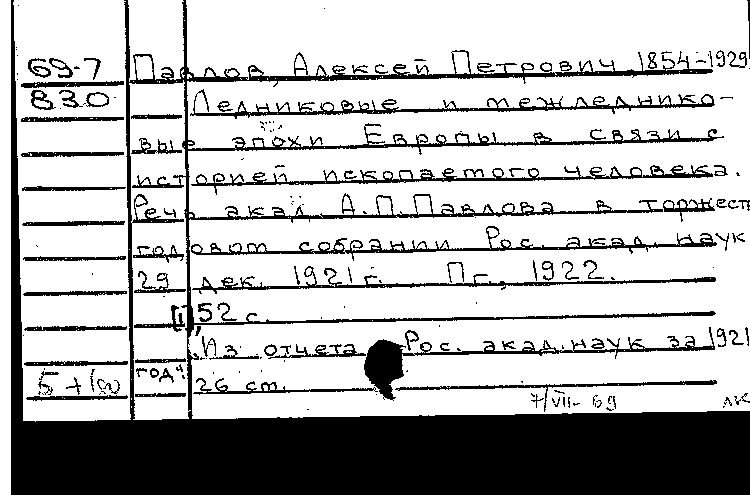 69-7 Павлов, Алексей Петрович, 1854-1929
830 Ледниковые и межледнико-
вые эпохи Европы в связи с
историей ископаемого человека.
Речь акад. А.П.Павлова в торжест
годовом собрании Рос. акад. наук
29 дек. 1921 г. Пг., 1922.
[1], 52 с.
"Из отчета Рос. акад. наук за 1921
год" 26 см.
7/VII-69 лк